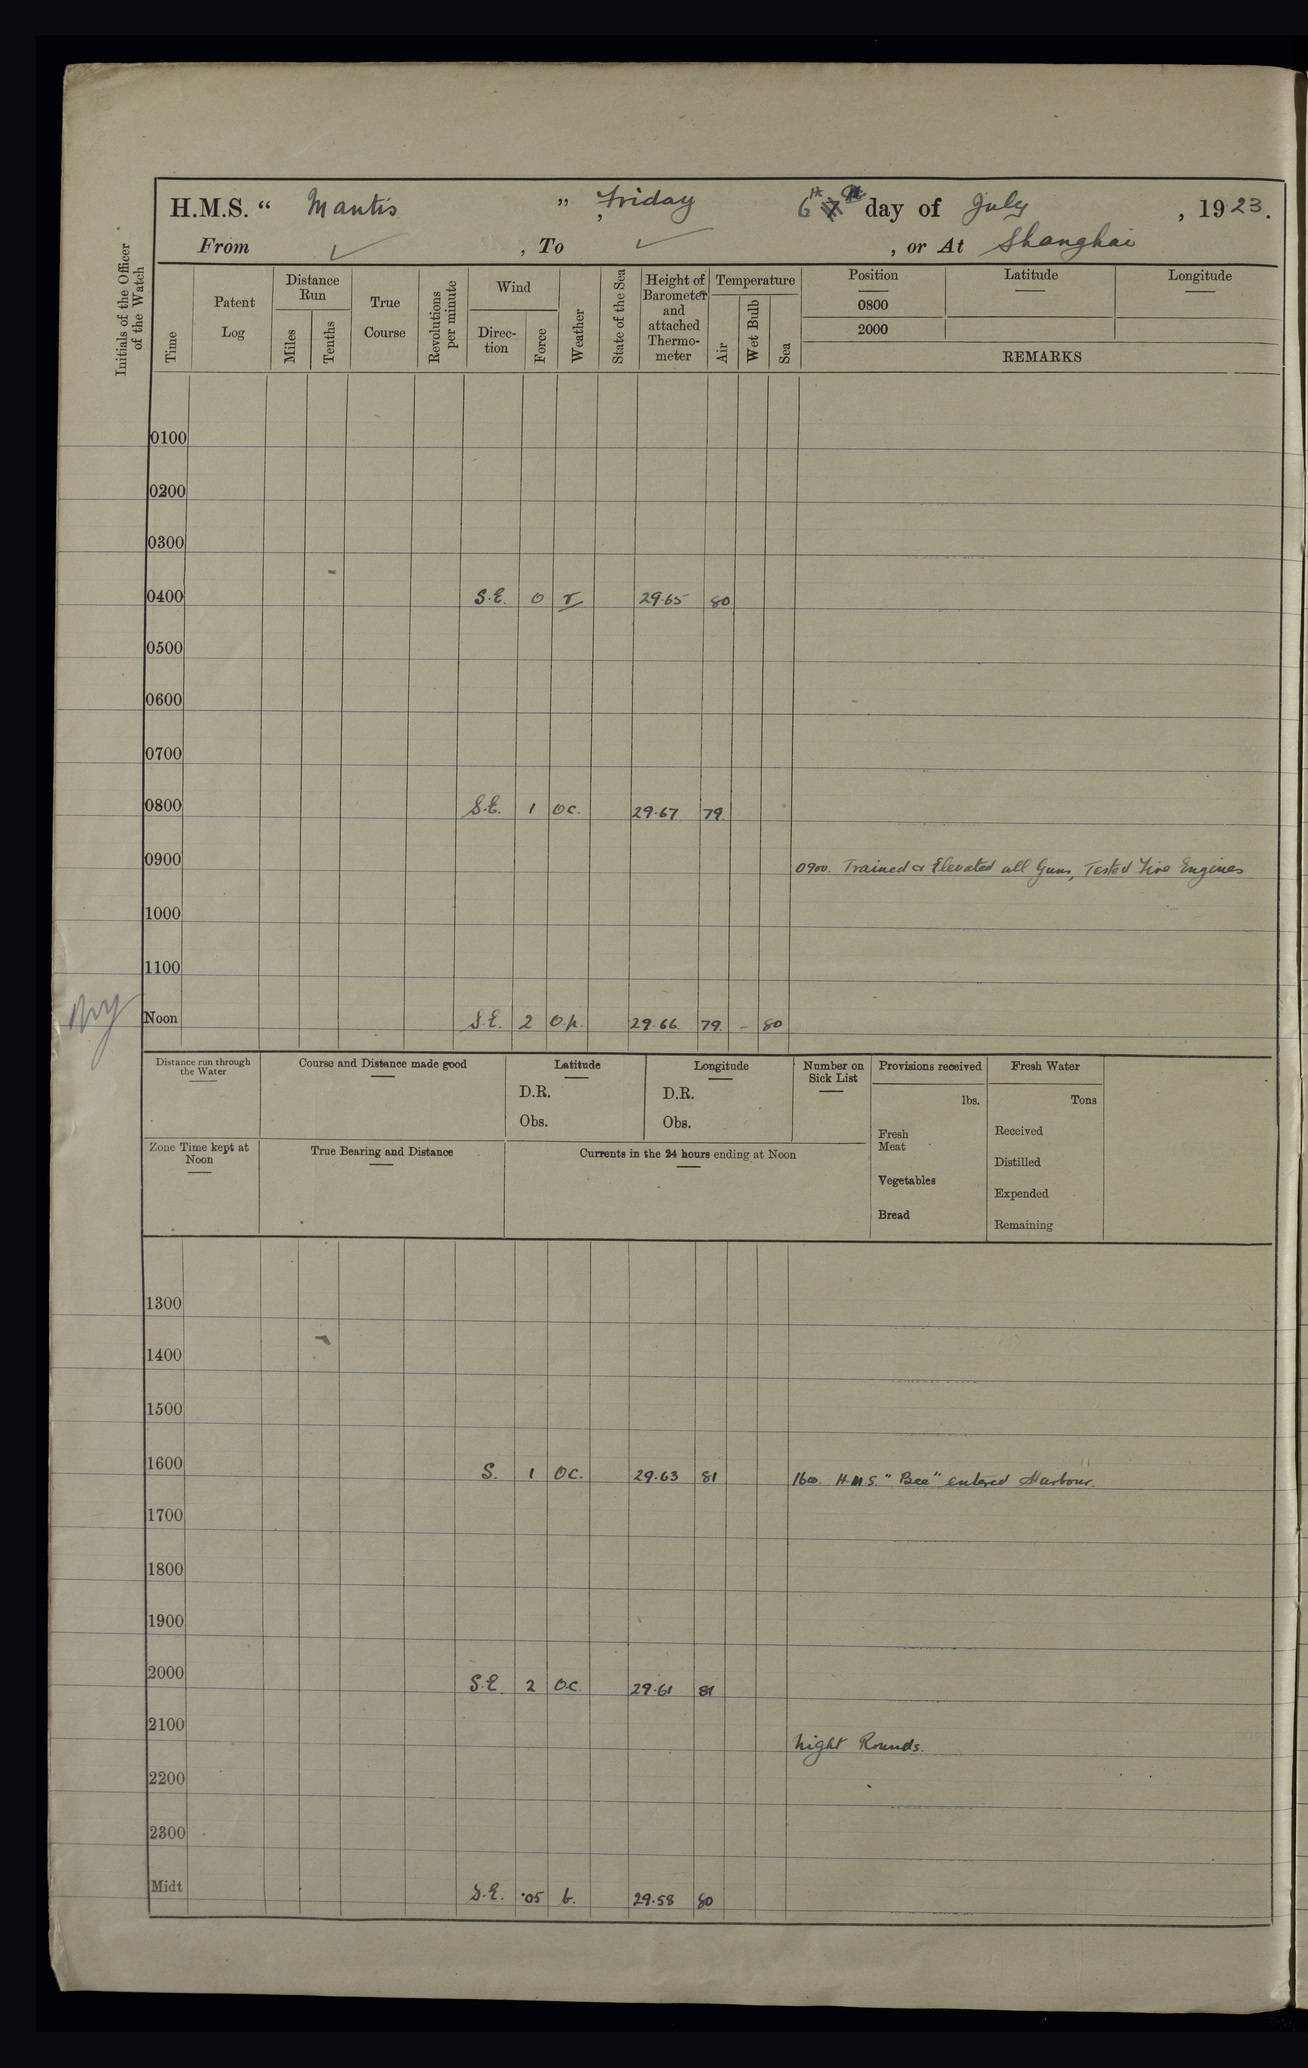 H.M.S. “ Mantis ” , Friday 6th day of July , 1923.
From ✓ , To ✓ , or At Shanghai
Initials of the Officer of the Watch
Time
Patent Log
Distance Run
Miles
Tenths
True Course
Revolutions per minute
Wind
Direc-tion
Force
Weather
State of the Sea
Height of Barometer and attached Thermo-meter
Temperature
Air
Wet Bulb
Sea
Position Latitude Longitude
0800
2000
REMARKS
0100
0200
0300
0400 S.E. 0 r 29.65 80
0500
0600
0700
0800 S.E. 1 oc. 29.67 79
0900 0900. Trained & Elevated all Guns, Tested Fire Engines
1000
1100
Noon S.E. 2 o.p. 29.66 79. - 80
Distance run through the Water
Course and Distance made good
Latitude
D.R.
Obs.
Longitude
D.R.
Obs.
Number on Sick List
Provisions received
lbs.
Fresh Meat
Vegetables
Bread
Fresh Water
Tons
Received
Distilled
Expended
Remaining
Zone Time kept at Noon
True Bearing and Distance
Currents in the 24 hours ending at Noon
1300
1400
1500
1600 S. 1 oc. 29.63 81 1600. H.M.S. "Bee" entered Harbour.
1700
1800
1900
2000 S.E. 2 o.c. 29.61 81
2100 Night Rounds.
2200
2300
Midt S.E. .05 b. 29.58 80